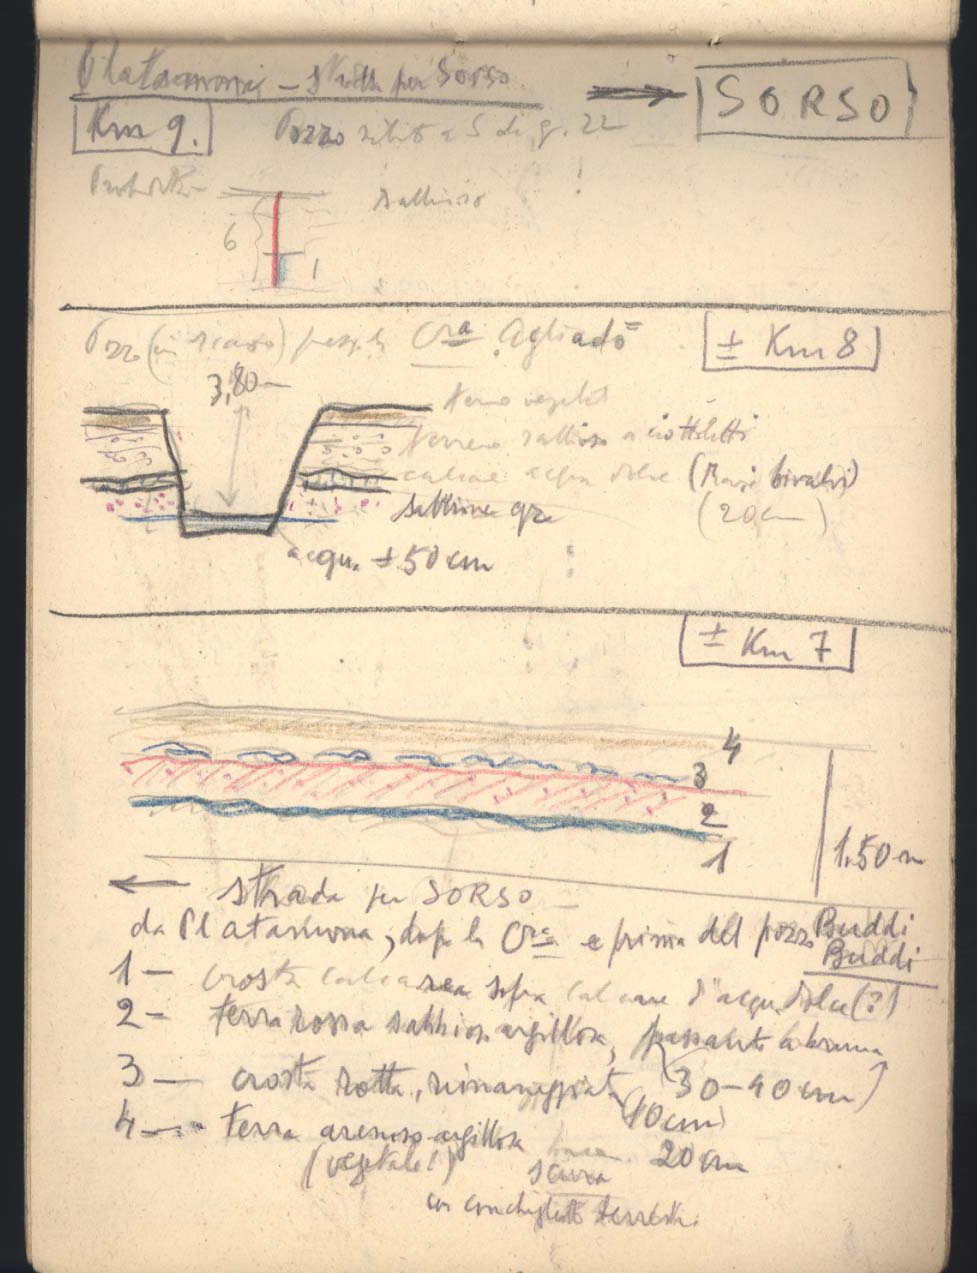 Platamona – strada per Sorso → SORSO
Km 9. Pozzo sito a S di q. 22
sabbioso
6
1
Pozzo (in scavo) presso la Cra Agliadò ± Km 8
3,80 m
terreno vegetale
terreno sabbioso a ciottoletti
calcare acqua dolce (Rari bivalvi)
(20 cm)
sabbione
acqua ± 50 cm
± Km 7
4
3
2
1
1.50 m
← strada per SORSO
da Platamona, dopo la Cra e prima del pozzo Buddi
Buddi
1 — crosta calcarea sopra calcare d'acqua dolce (?)
2 – terra rossa sabbioso argillosa, passante a bruna
3 — crosta rotta, rimaneggiata (30–40 cm)
(10 cm)
4 — terra arenoso-argillosa 20 cm
(vegetale!) scura
con conchigliette terrestri.